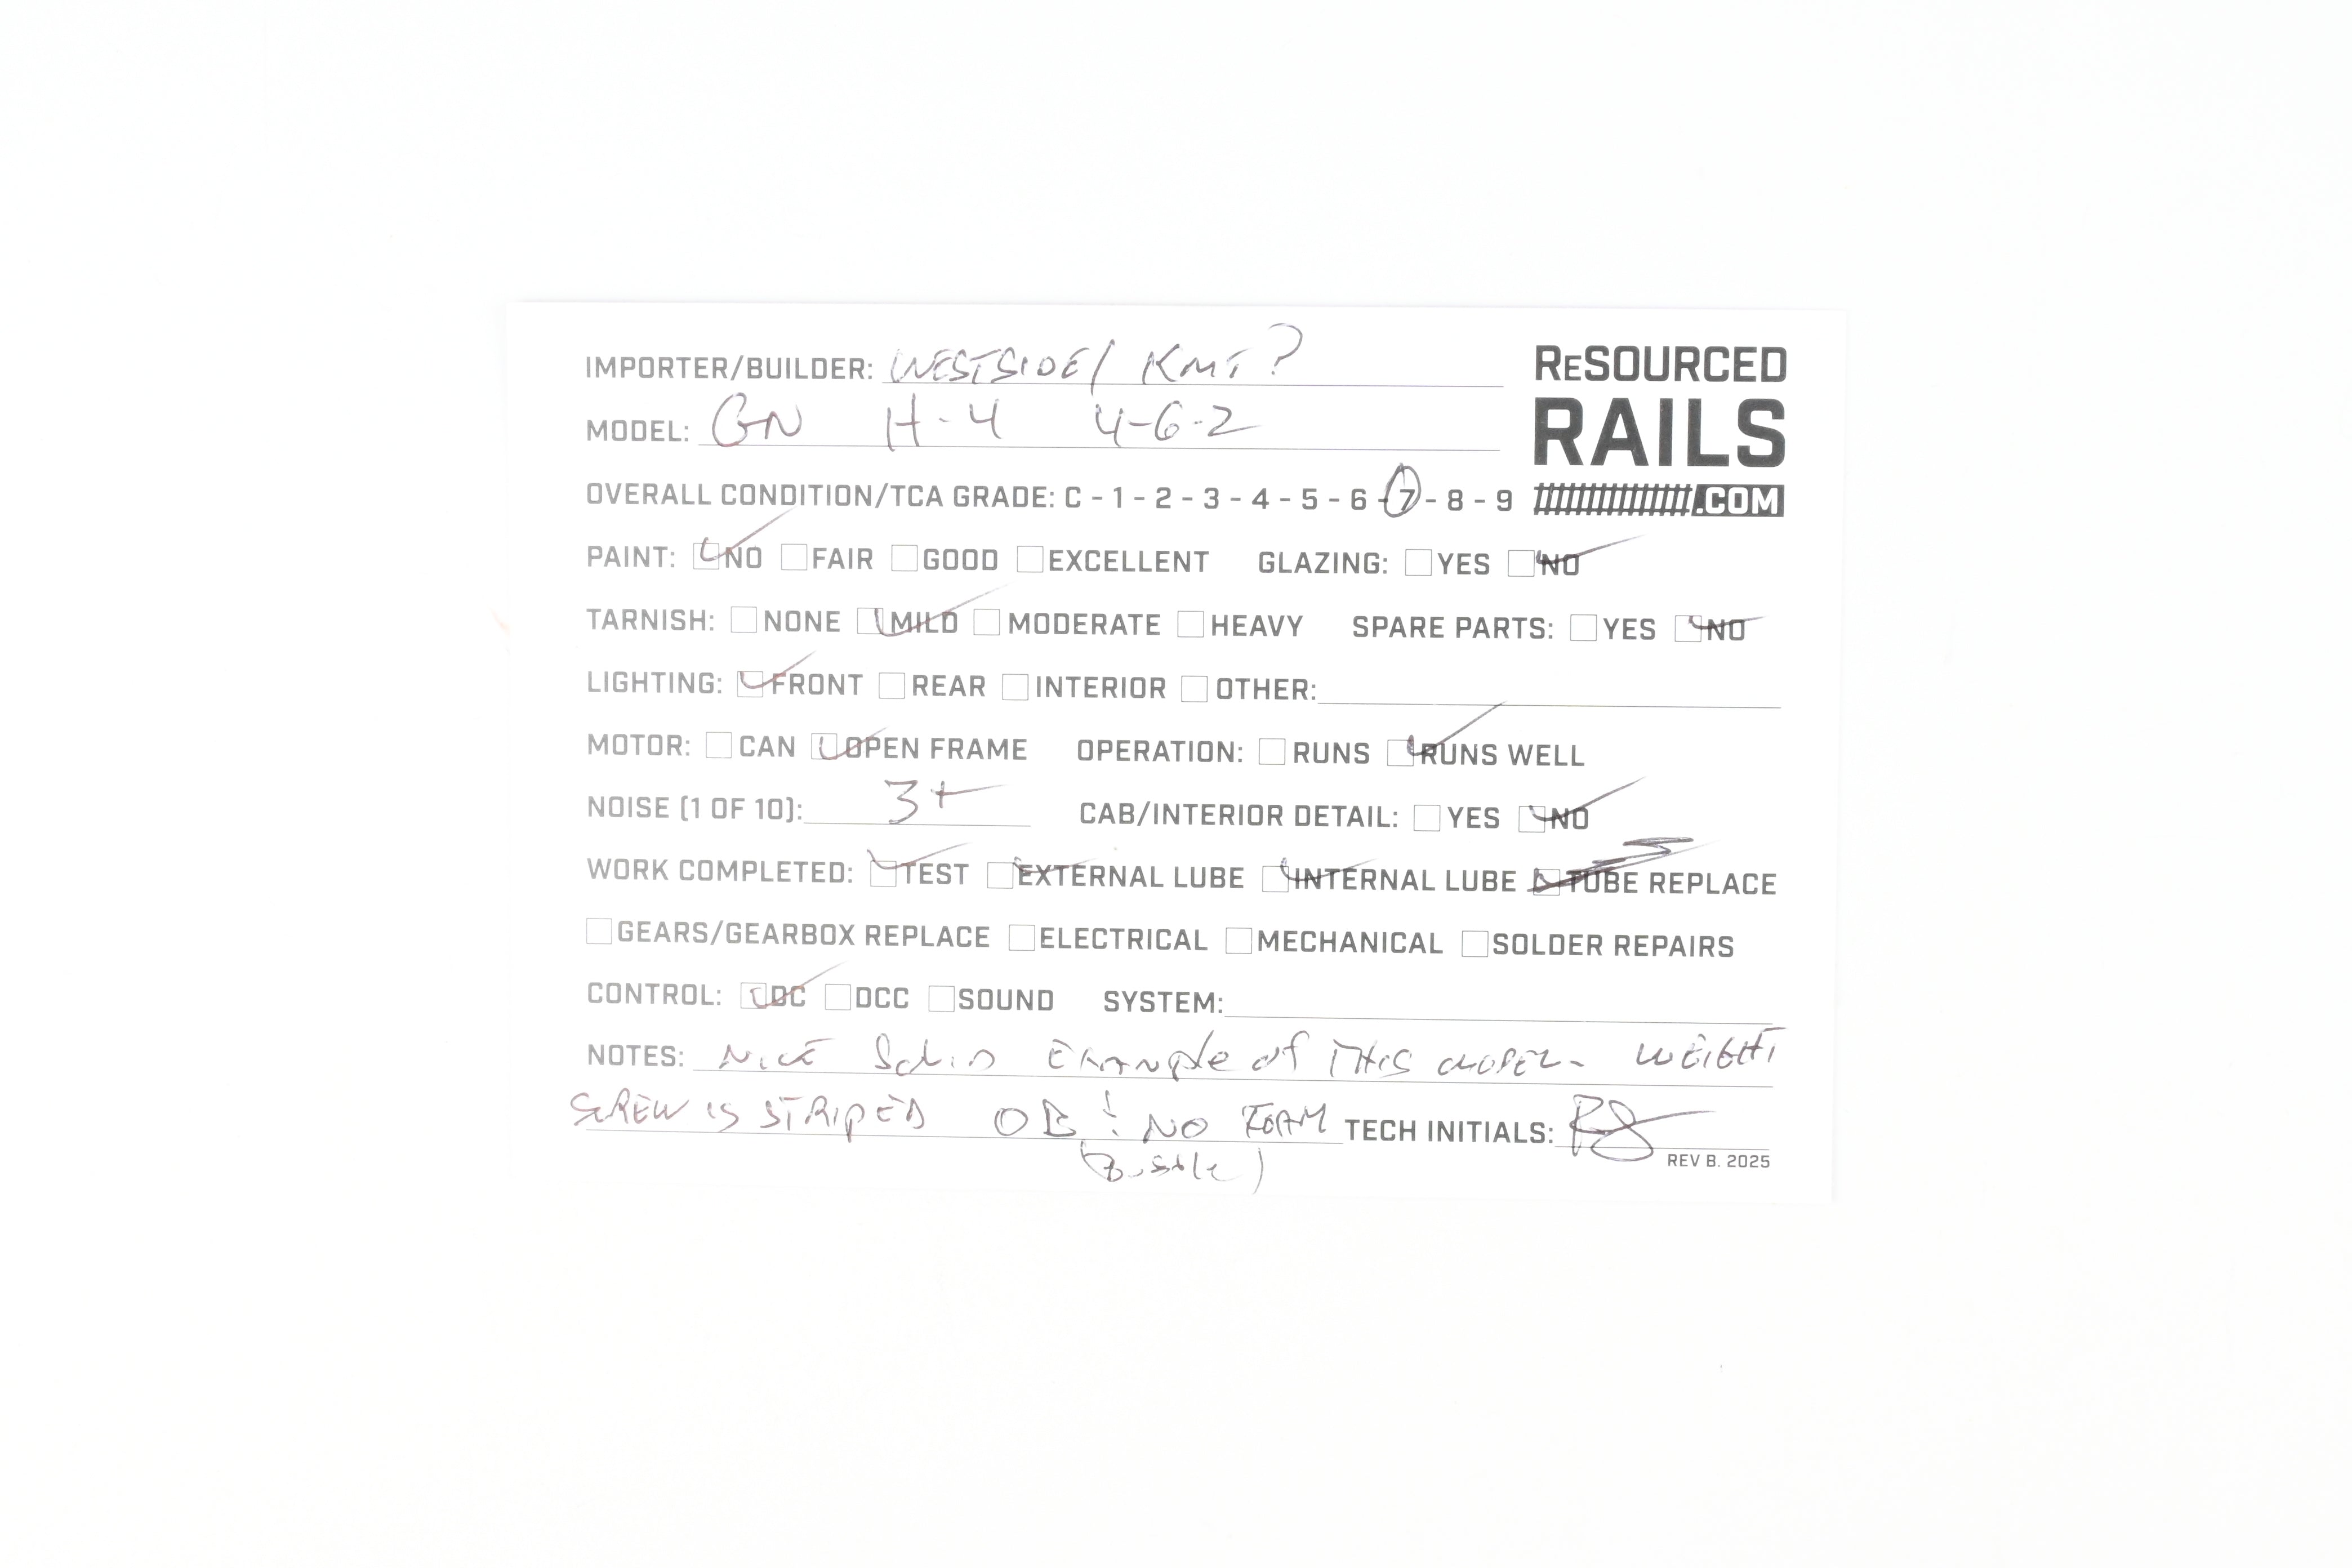 IMPORTER/BUILDER: WESTSIDE/ KMT?
RESOURCED
RAILS
.COM
MODEL: GN H-4 4-6-2
OVERALL CONDITION/TCA GRADE: C - 1 - 2 - 3 - 4 - 5 - 6 - 7 - 8 - 9
PAINT: NO FAIR GOOD EXCELLENT GLAZING: YES NO
TARNISH: NONE MILD MODERATE HEAVY SPARE PARTS: YES NO
LIGHTING: FRONT REAR INTERIOR OTHER:
MOTOR: CAN OPEN FRAME OPERATION: RUNS RUNS WELL
NOISE (1 OF 10): 3+ CAB/INTERIOR DETAIL: YES NO
WORK COMPLETED: TEST EXTERNAL LUBE INTERNAL LUBE TUBE REPLACE
GEARS/GEARBOX REPLACE ELECTRICAL MECHANICAL SOLDER REPAIRS
CONTROL: DC DCC SOUND SYSTEM:
NOTES: NICE SOLID EXAMPLE OF THIS MODEL - WEIGHT
SCREW IS STRIPED OB: NO FOAM TECH INITIALS:
REV B. 2025